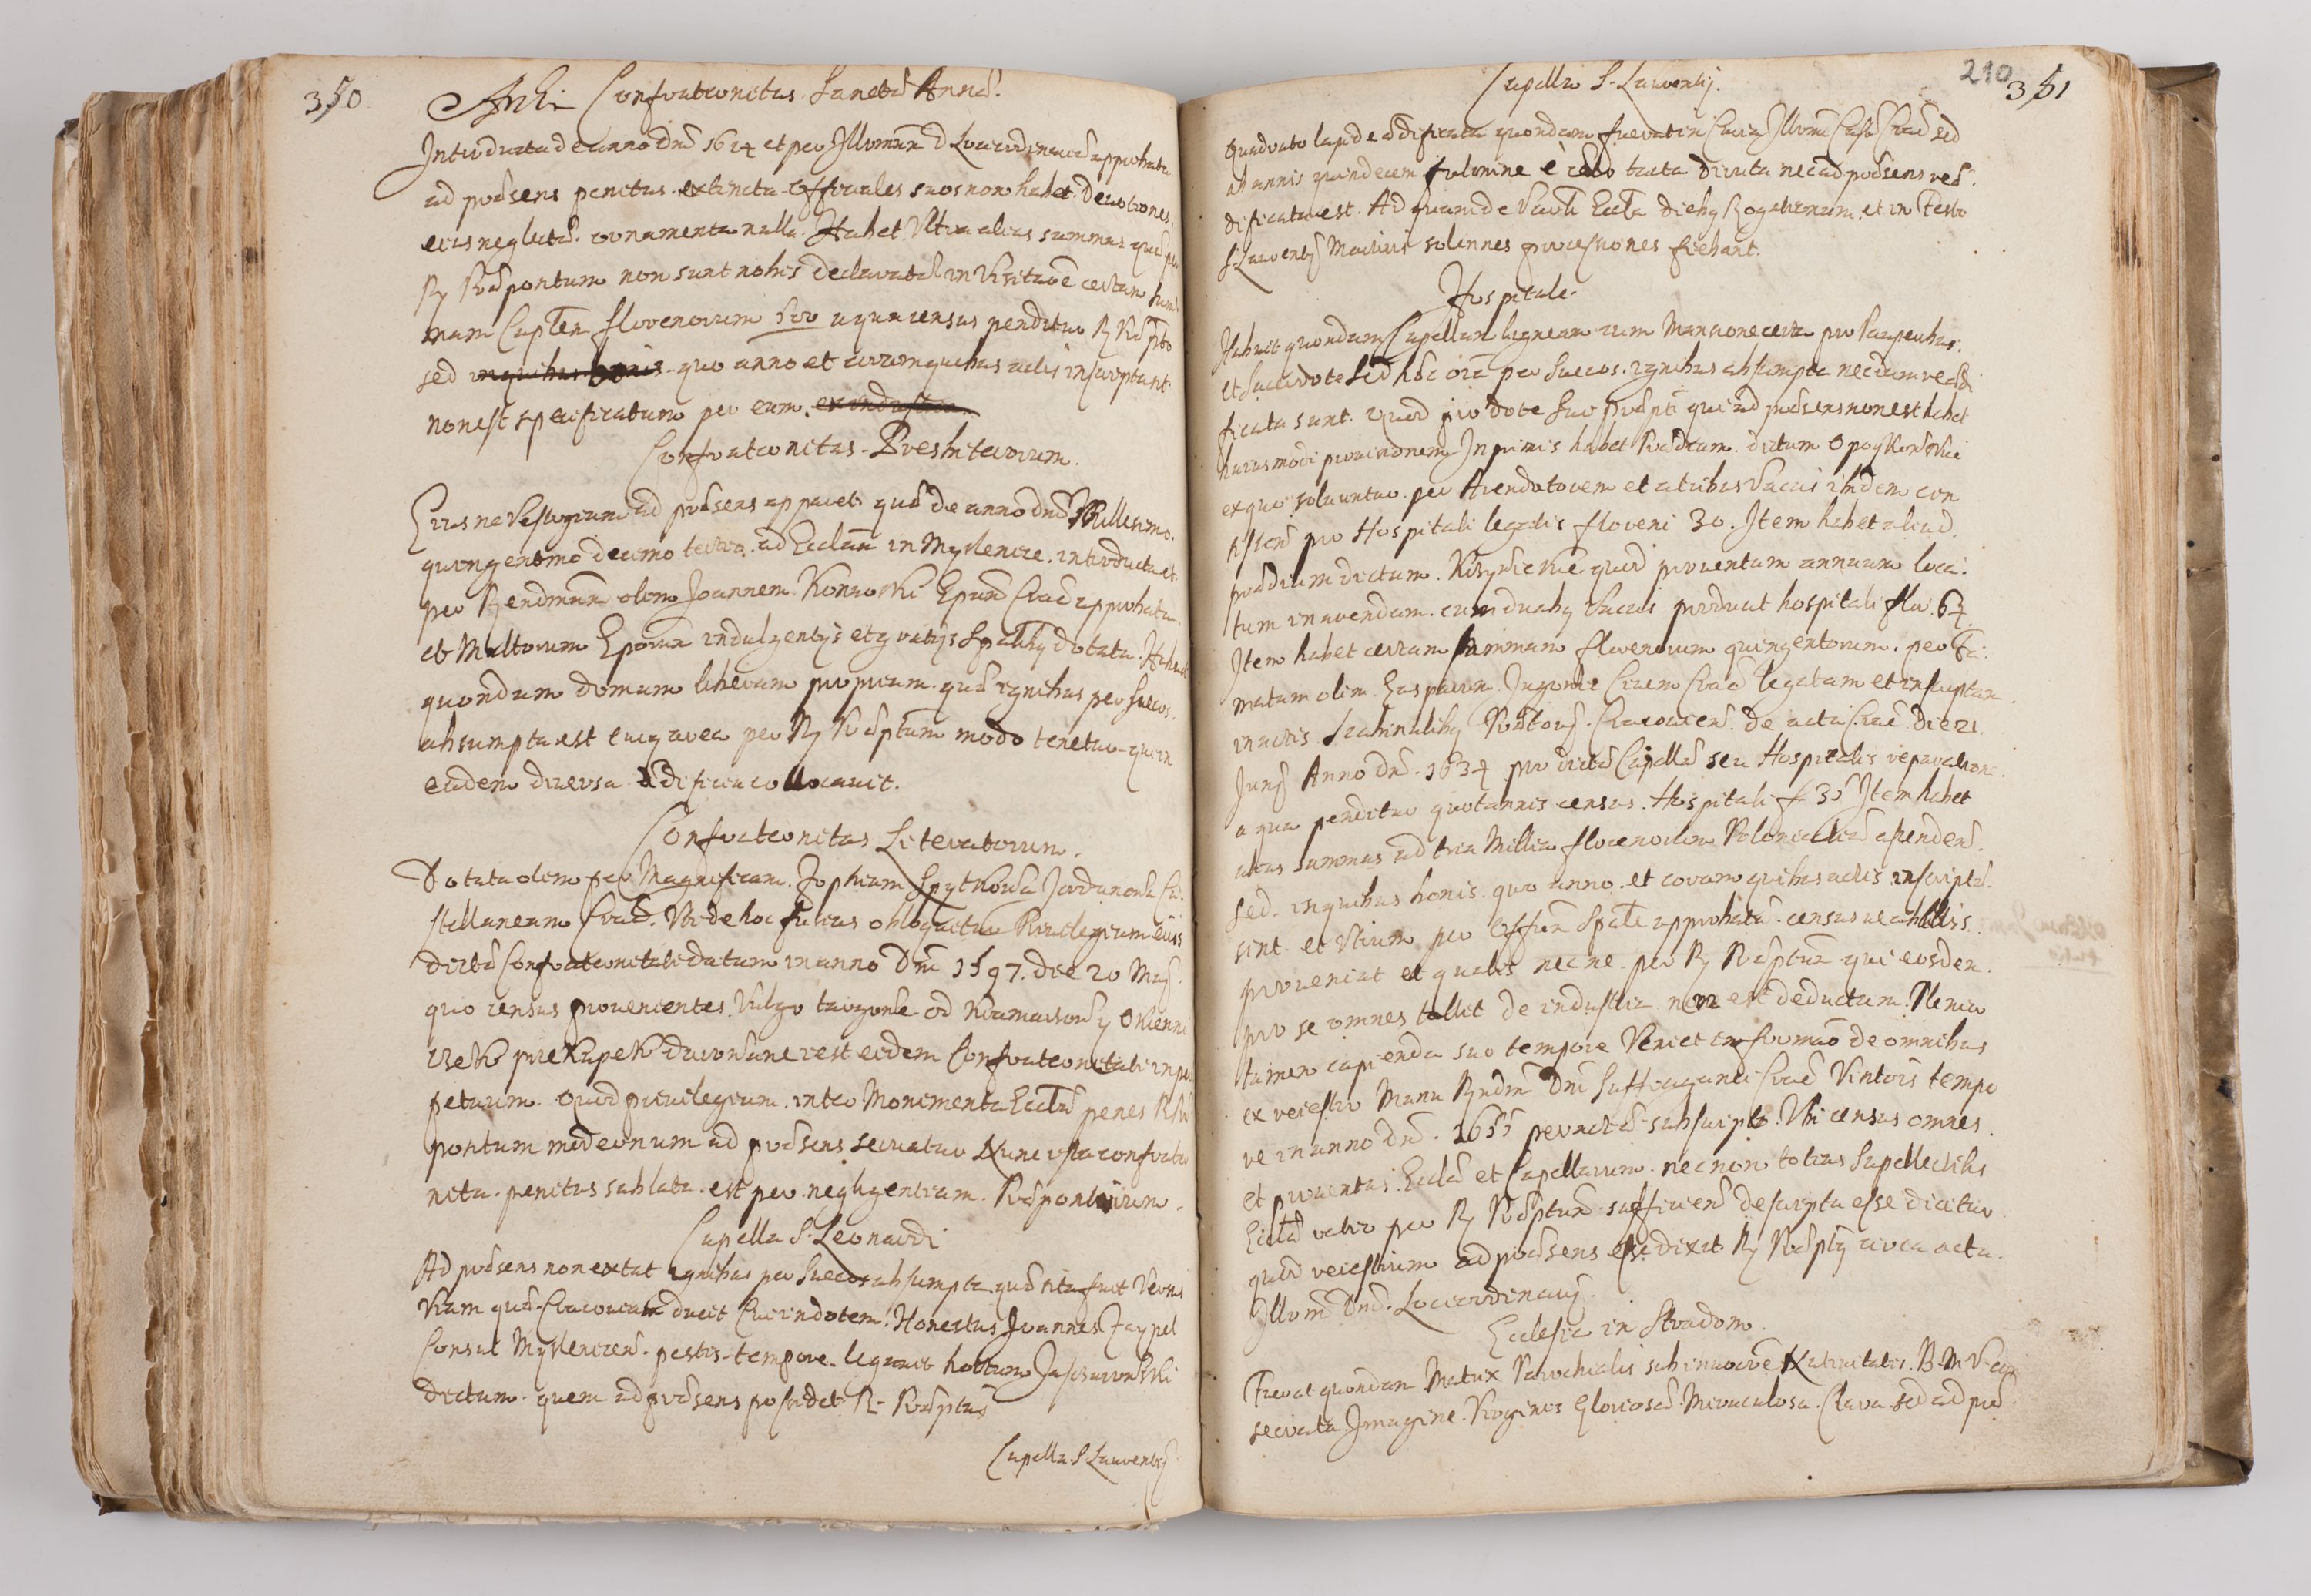 350
Archi Confraternitas Sanctæ Annæ.
Introducta de anno Dnī 1624 et per Illvmum D Loci ordinariū approbata
ad præsens penitus extincta Officiales suos non habet. Devotiones
eius neglectæ. ornamenta nulla. Habet Vltra alias summas quæ per
Rr Præpositum non sunt nobis declaratæ in Visitaōe certam sum
mam Caplem florenorum 500 a qua census penditur R Præpto
sed in quibus bonis quo anno et coram quibus actis inscripta sit
non est specificatum per eum. ex industria.
Confraternitas Presbiterorum.
Eius ne Vestigium ad præsens apparet quæ de anno dnī Millesimo
quingentesimo decimo tertio ad Ecclām in Myslenice introducta et
per Rendmum olim Joannem Konarski Epum Crac approbata
et Multorum Eporum indulgentijs et gratijs spālibg dotata. Habuit
quondam domum liberam propriam quæ ignibus per Suecos
absumpta est cuius area per Rr Præptum modo tenetur qui in
eadem diversa ædificia collocavit.
Confraternitas Literatorum.
Dotata olim per Magnificam Zophiam Spytkowa Jordanowa Ca
stellaneam Crac. Vti de hoc fusius obloquitur Privilegium eiss
dictæ Confraternitati datum in anno Dnī 1597. die 20 Maij
quo census provenientes Vulgo targowe od Kramarsow y Okienni
czek przekupek darowane est eidem Confraternitati in per
petuum. Quod privilegium inter Monimenta Ecclæ penes Præ
positum modernum ad præsens servatur Nunc ista confrater
nitas penitus sublata est per negligentiam Præpositorum.
Capella S. Leonardi
Ad præsens non extat ignibus per Suecos absumpta quæ sita fuit Versus
Viam quæ Cracoviam ducit Cui in dotem Honestus Joannes Zaypel
Consul Myslenicen. pestis tempore legavit hortum
dictum quem ad præsens possidet R. Præptus
Capella S. Laurentij
210
351
Capella S. Laurentij.
Quadrato lapide ædificata quondam fuerat in Curia Illvmi Crac sed
ab annis quindecim fulmine è cælo tacta diruta nec ad præsens reæ
dificata est. Ad quam de Eccla diebg Rogationum et in Festo
S. Laurentij Martiris solennes processiones fiebant.
Hospitale.
Habuit quondam Capellam ligneam cum Mansione certa pro Pauperibus
et Sacerdote sed hæc oīa per Suecos ignibus absumpta nec dum reædi
ficata sunt. Quod pro dote Suo præpti qui ad præsens non est habet
huiusmodi provisionem. Inprimis habet Prædium dictum
ex quo solvuntur per Arendatorem et a tribus Vaccis ibidem con
sisten pro Hospitali legatis floreni 30. Item habet aliud
prædium dictum quod proventum annuum loca
tum in arendam cum duabg Vaccis producit hospitali flor. 64
Item habet certam summam florenorum quingentorum per Fa
matum olim Gasparum Civem Crac legatam et inscriptam
in actis Scabinalibg Cracovien. de acta Crac die 21
Junij Anno Dnī 1634 pro dictæ Capellæ seu Hospitalis reparatione
a qua penditur quotannis census Hospitali f 35 Item habet
alias summas ad tria Millia florenorum Polonicaliū ascenden
sed in quibus bonis quo anno et coram quibus actis inscriptæ
sint et Vtrum per Offum Spāle approbatæ census ve ab illis
proveniat et qualis nec ne per Rr Præptum qui eosdem
pro se omnes tollit de industria non est deductum. Plenior
tamen capienda suo tempore Veniet informaō de omnibus
ex regestro Manu Rndmi Dnī Suffraganei Crac Vintoris tempo
re in anno dnī 1655 peractæ subscripto. Vbi census omnes
et proventus Ecclæ et Capellarum nec non totius Supellectilis
Ecclæ ratio per Rr Præptum sufficien descripta esse dicitur
quod regestrum ad præsens esse dixit Rr Præptg circa acta
Illvmi Dnī Loci ordinarij.
Ecclesia in Stradom.
Fuerat quondam Matrix Parochialis sub invocōne Nativitatis B. M. V. as
servata Imagine Virginis Gloriosæ Miraculosa Clara sed ad præ